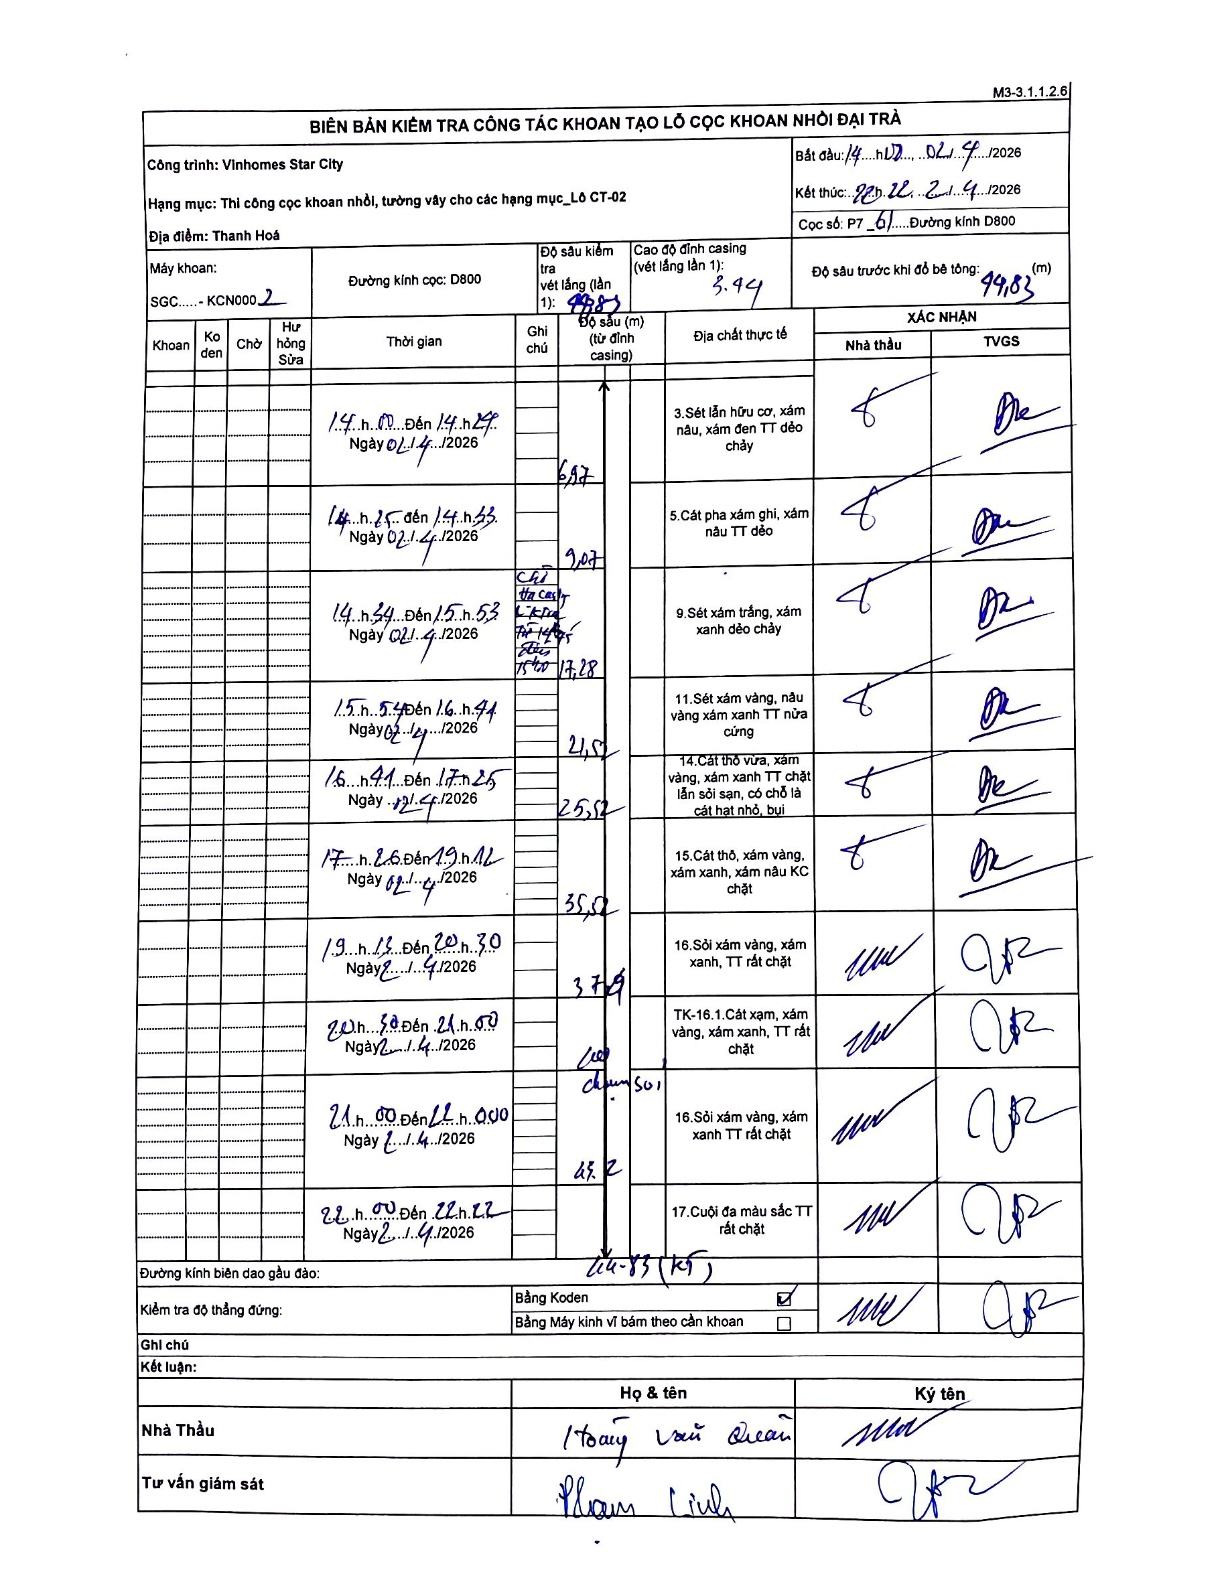 M3-3.1.1.2.6
BIÊN BẢN KIỂM TRA CÔNG TÁC KHOAN TẠO LỖ CỌC KHOAN NHỒI ĐẠI TRÀ
Công trình: Vinhomes Star City
Bắt đầu: 14 h 00, 02/4/2026
Hạng mục: Thi công cọc khoan nhồi, tường vây cho các hạng mục_Lô CT-02
Kết thúc: 22h.22, 2/4/2026
Địa điểm: Thanh Hoá
Cọc số: P7_61.....Đường kính D800
Máy khoan:
SGC.....- KCN0002
Đường kính cọc: D800
Độ sâu kiểm
tra
vét lắng (lần
1): 44,83
Cao độ đỉnh casing
(vét lắng lần 1):
3.44
Độ sâu trước khi đổ bê tông: 44,83 (m)
Khoan
Ko
den
Chờ
Hư
hỏng
Sửa
Thời gian
Ghi
chú
Độ sâu (m)
(từ đỉnh
casing)
Địa chất thực tế
XÁC NHẬN
Nhà thầu
TVGS
14 h 00 Đến 14 h 24
Ngày 02/4/2026
6,97
3.Sét lẫn hữu cơ, xám
nâu, xám đen TT dẻo
chảy
14 h 25 đến 14 h 33
Ngày 02/4/2026
9,07
5.Cát pha xám ghi, xám
nâu TT dẻo
14 h 34 Đến 15 h 53
Ngày 02/4/2026
15h00
17,28
9.Sét xám trắng, xám
xanh dẻo chảy
15 h 54 Đến 16 h 41
Ngày 02/4/2026
21,52
11.Sét xám vàng, nâu
vàng xám xanh TT nửa
cứng
16 h 41 Đến 17 h 25
Ngày 02/4/2026
25,52
14.Cát thô vừa, xám
vàng, xám xanh TT chặt
lẫn sỏi sạn, có chỗ là
cát hạt nhỏ, bụi
17 h 26 Đến 19 h 12
Ngày 02/4/2026
35,52
15.Cát thô, xám vàng,
xám xanh, xám nâu KC
chặt
19 h 13 Đến 20 h 30
Ngày 2/4/2026
16.Sỏi xám vàng, xám
xanh, TT rất chặt
20 h 30 Đến 21 h 00
Ngày 2/4/2026
TK-16.1.Cát xạm, xám
vàng, xám xanh, TT rất
chặt
21 h 00 Đến 22 h 000
Ngày 2/4/2026
43.2
16.Sỏi xám vàng, xám
xanh TT rất chặt
22 h 00 Đến 22 h 22
Ngày 2/4/2026
17.Cuội đa màu sắc TT
rất chặt
44-83 (KT)
Đường kính biên dao gầu đào:
Kiểm tra độ thẳng đứng:
Bằng Koden
Bằng Máy kinh vĩ bám theo cần khoan
Ghi chú
Kết luận:
Họ & tên
Ký tên
Nhà Thầu
Hoàng Văn Quân
Tư vấn giám sát
Phạm Linh